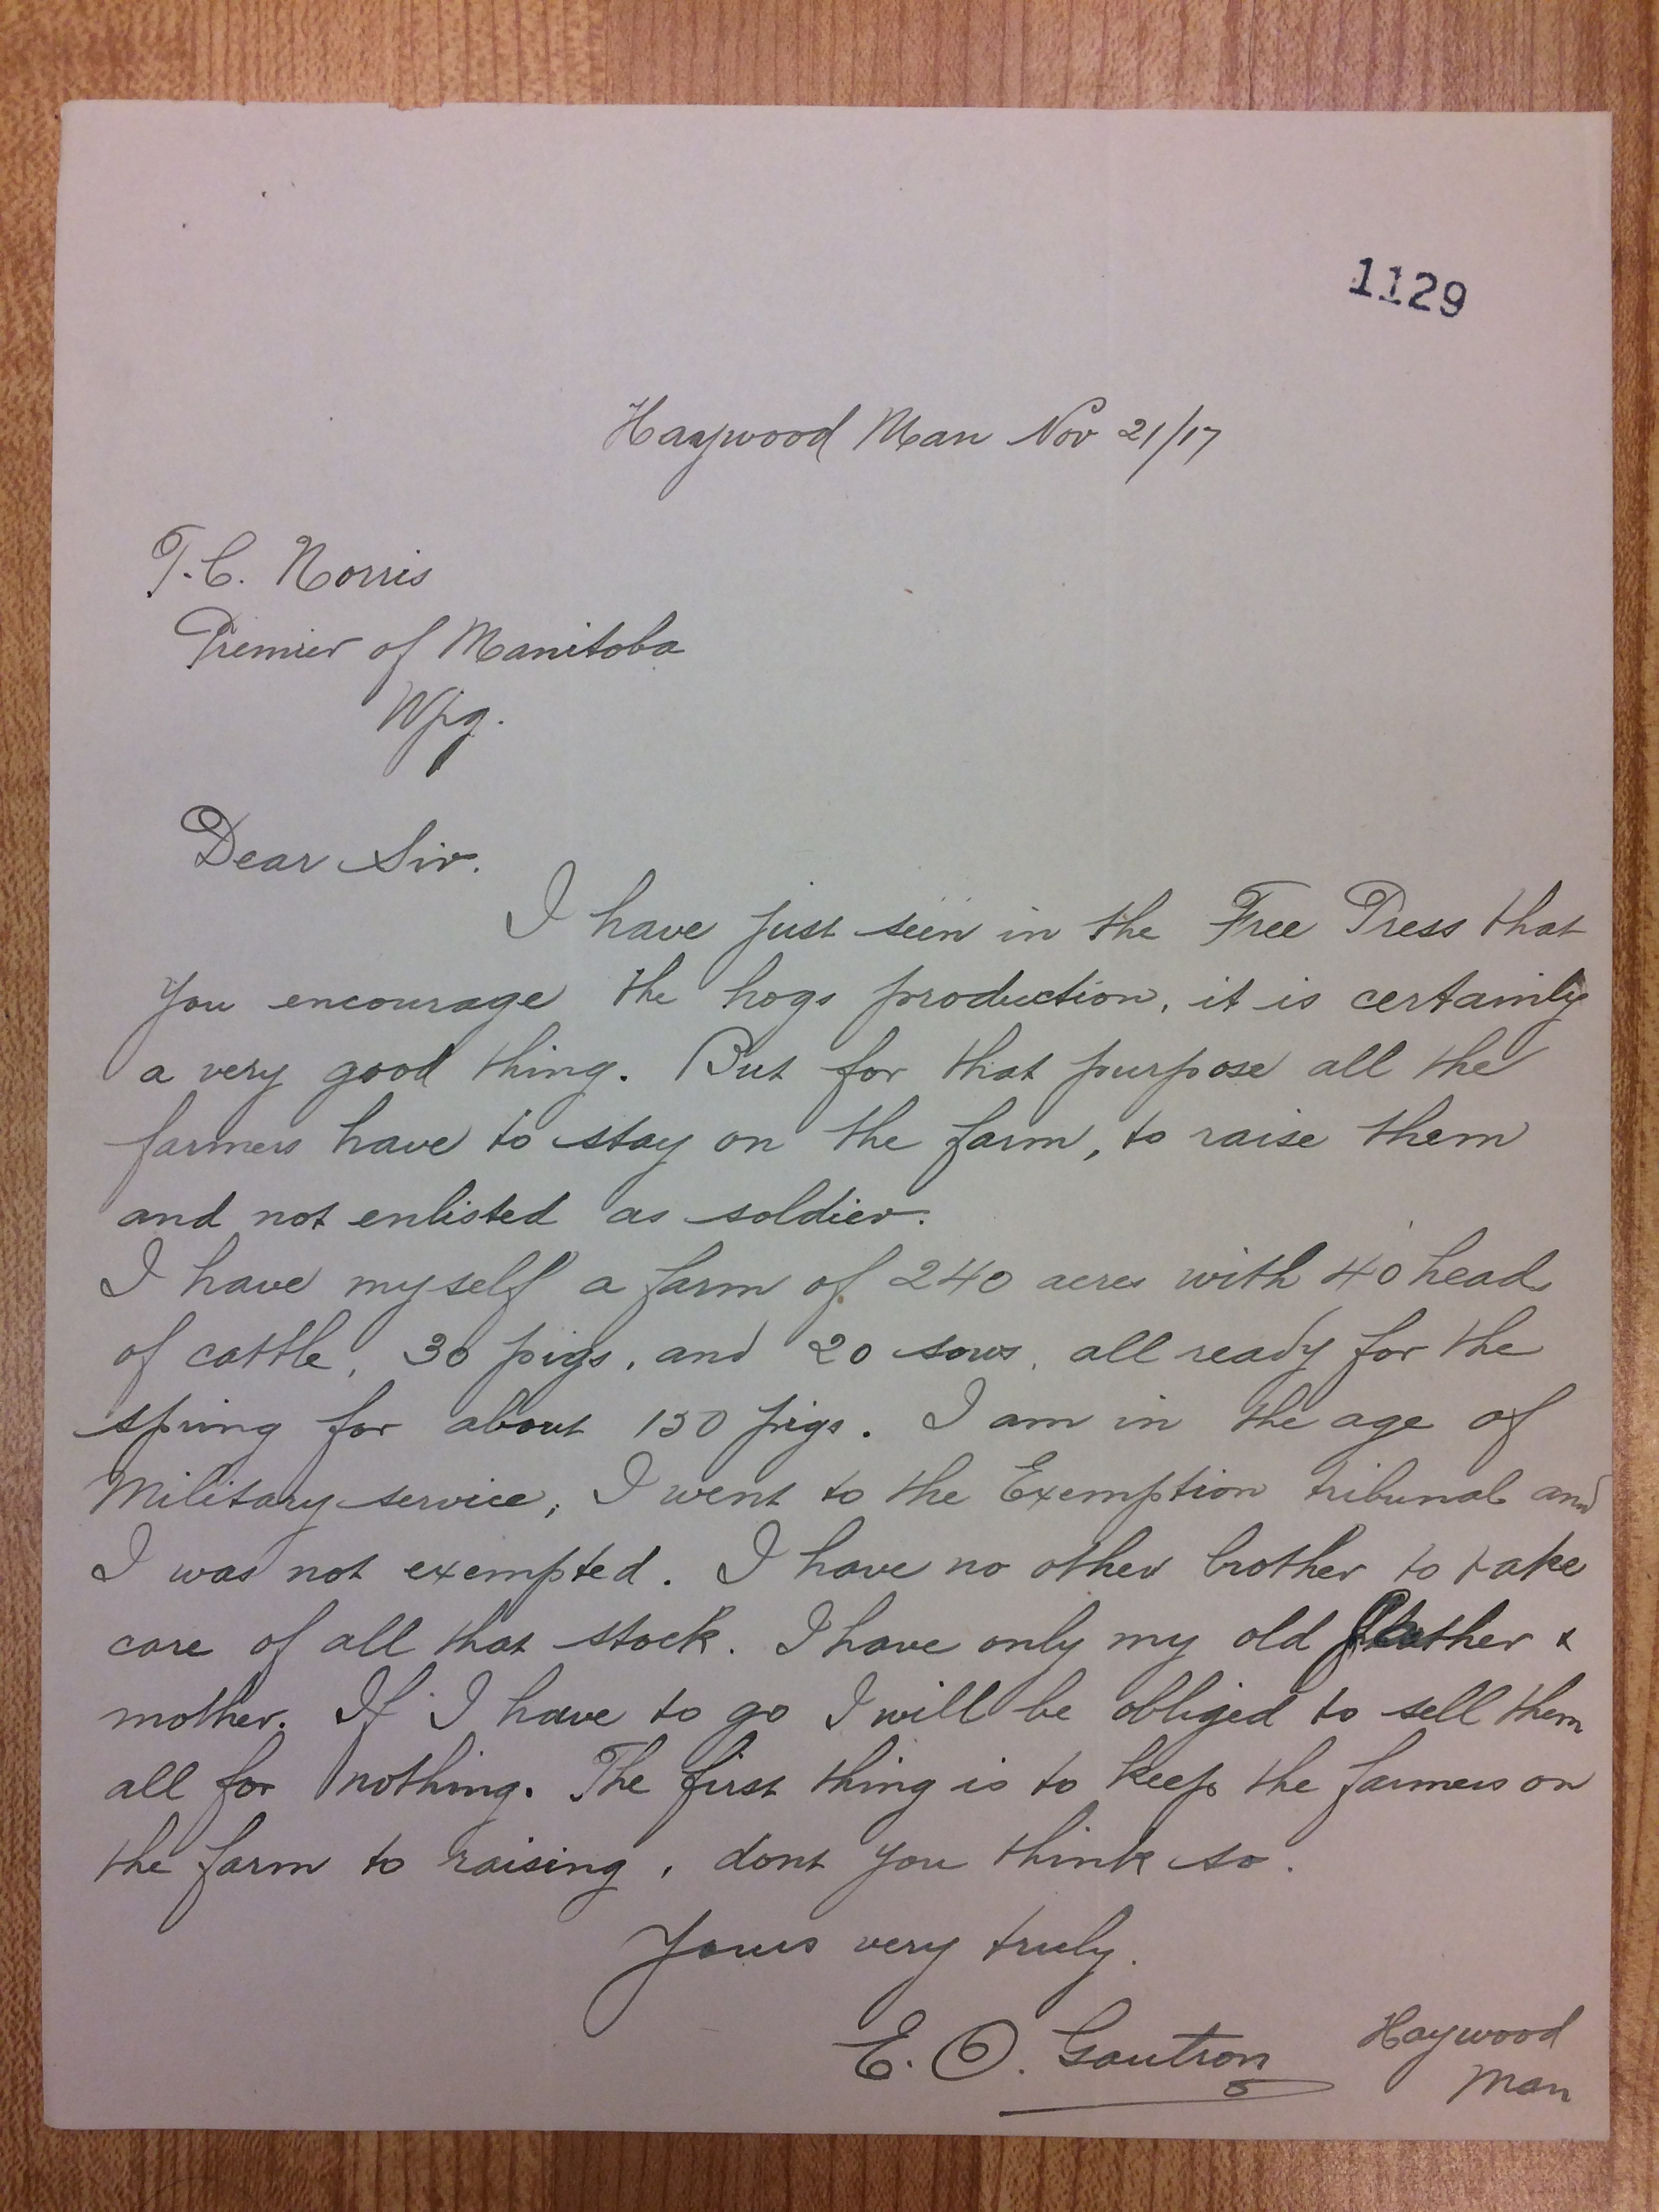 1129
Haywood Man Nov 21/17
T.C. Norris
Premier of Manitoba
Wpg.
Dear Sir.
I have just seen in the Free Press that
you encourage the hogs production, it is certainly
a very good thing. But for that purpose all the
farmers have to stay on the farm, to raise them
and not enlisted as soldier.
I have myself a farm of 240 acres with 40 head
of cattle, 30 pigs, and 20 sows, all ready for the
spring for about 150 pigs. I am in the age of
Military service, I went to the Exemption tribunal and
I was not exempted. I have no other brother to take
care of all that stock. I have only my old father &
mother. If I have to go I will be obliged to sell them
all for nothing. The first thing is to keep the farmers on
the farm to raising, dont you think so.
Yours very truly.
E. O. Gautron
Haywood
Man